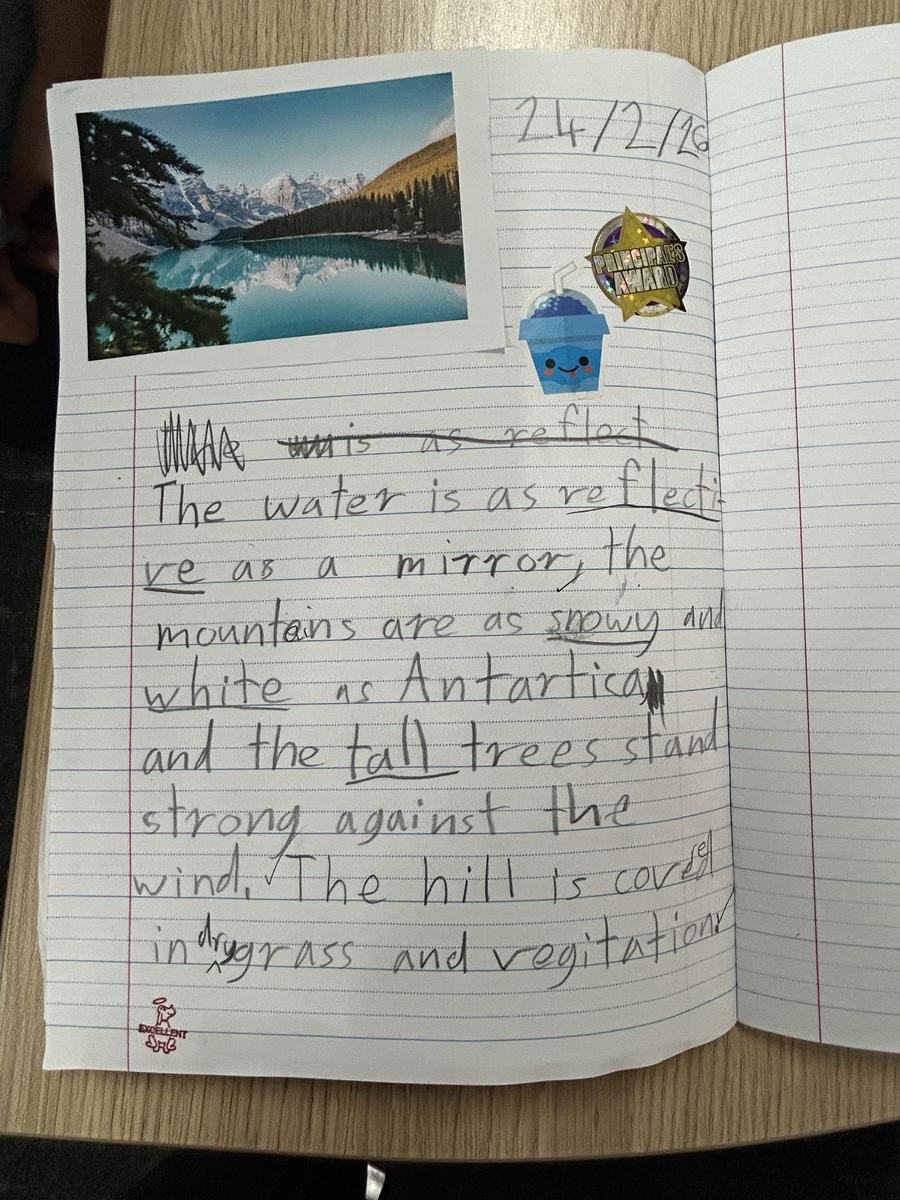 24/2/26
PRINCIPAL'S
AWARD
is as reflect
The water is as reflecti
ve as a mirror, the
mountains are as snowy and
white as Antartica
and the tall trees stand
strong against the
wind. The hill is covered
in dry grass and vegitation
EXCELLENT